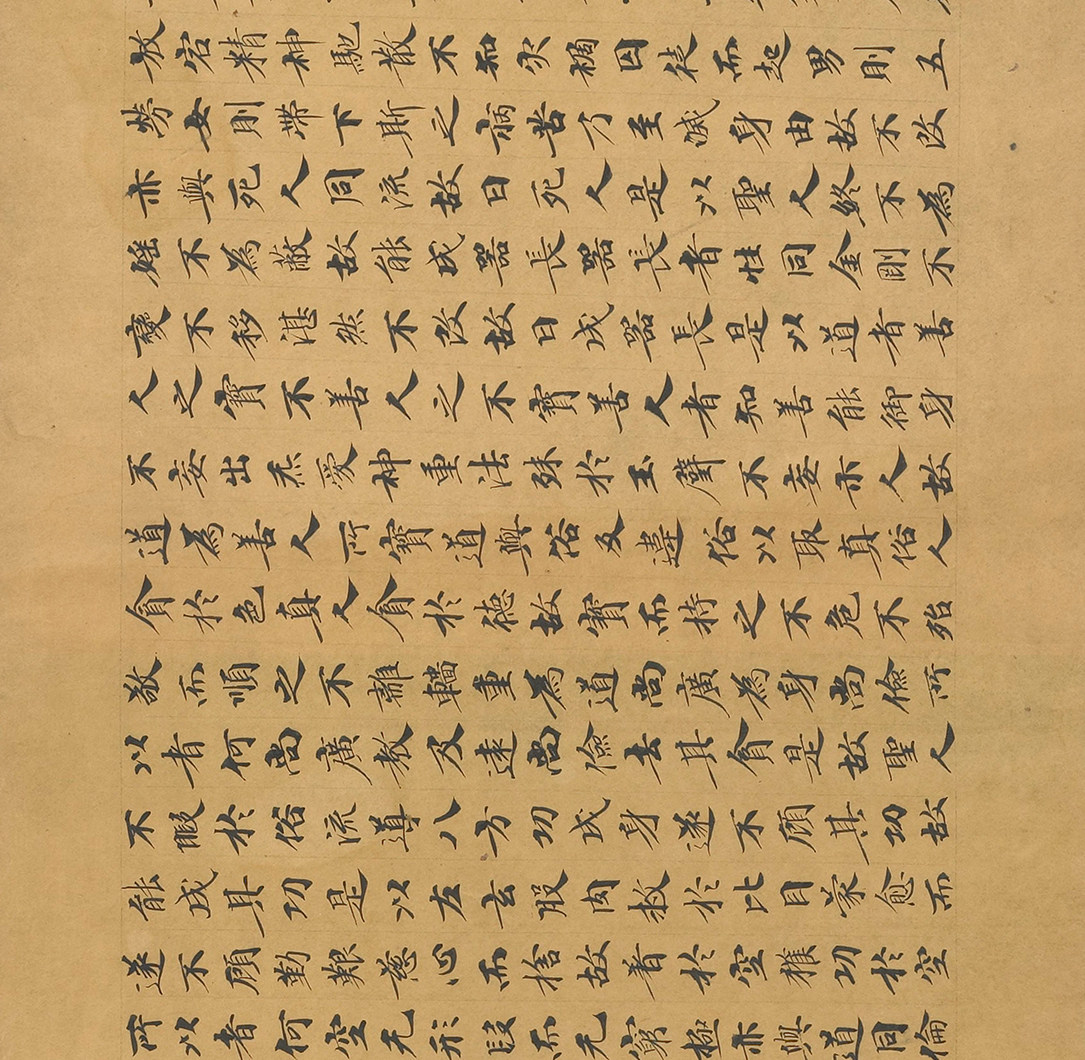 放宕精神馳散不知灾禍因徒而起男則五
勞女則帶下斯之病苦方至滅身由故不改
亦與死人同流故曰死人是以聖人終不為
不為蔽故能成器長器長者性同金剛不
變不移湛然不改故曰成器長是以道者善
人之寶不善人之不寶善人者知善能御身
不妄出炁愛神重法殊於玉璧不妄示人故
道為善人所寶道與俗反違俗以取真俗人
貪於色真人貪於德故寶而持之不危不殆
敬而順之不離輜重為道尚廣為身尚儉所
以者何尚廣教及遠尚儉去其貪是故聖人
不暇於俗流導八方功成身遂不顧其功故
能成其功是以左玄股肉救於比目蒙愈而
遂不顧勤艱慈心而捨故著於空推功於空
所以者何空无形段而无窮極亦與道同